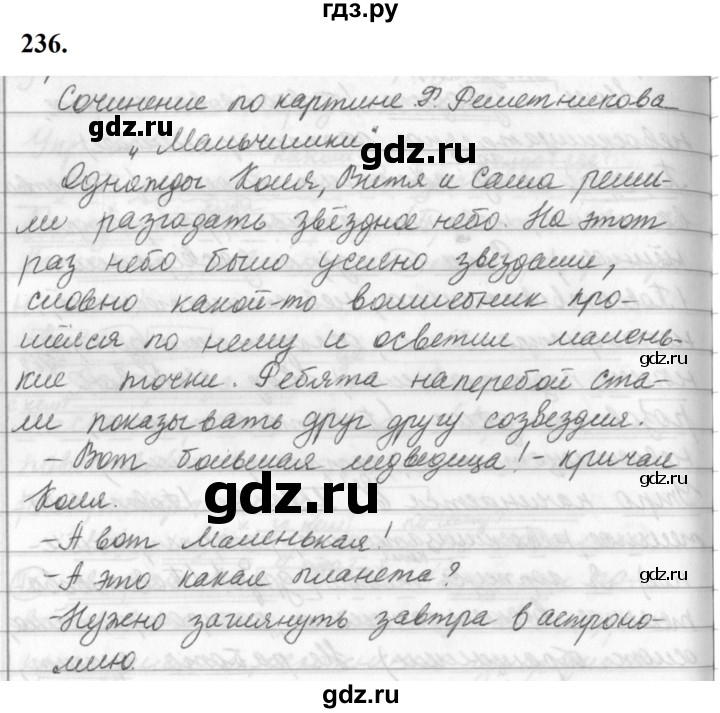 гдз.ру
236.
Сочинение по картине Ф. Решетникова
"Мальчишки"
Однажды Коля, Витя и Саша реши-
ли разгадать звёздное небо. На этот
раз небо было усеяно звездами,
словно какой-то волшебник про-
шёлся по нему и осветил малень-
кие точки. Ребята наперебой ста-
ли показывать друг другу созвездия.
- Вот большая медведица! - кричал
Коля.
- А вот Маленькая!
- А это какая планета?
- Нужно заглянуть завтра в астроно-
мию
gdz.ru
gdz.ru
gdz.ru
gdz.ru
gdz.ru
gdz.ru
gdz.ru
gdz.ru